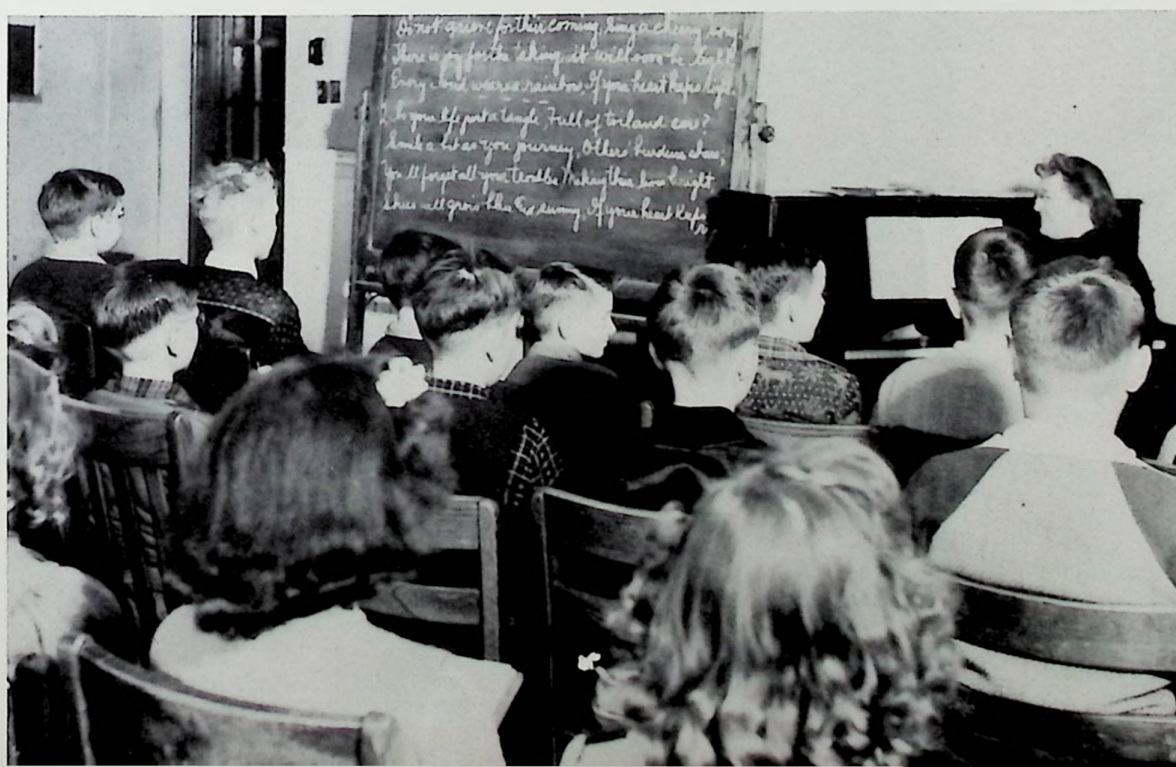 Do not grieve for their coming, Sing a cheery song
There is joy for the taking, it will soon be light
Every cloud wears a rainbow, If your heart keeps right.
2. Is your life just a tangle, Full of toil and care?
Smile a bit as you journey, Others burdens share,
You'll forget all your troubles Making their lives bright
Skies will grow blue & sunny, If your heart keeps